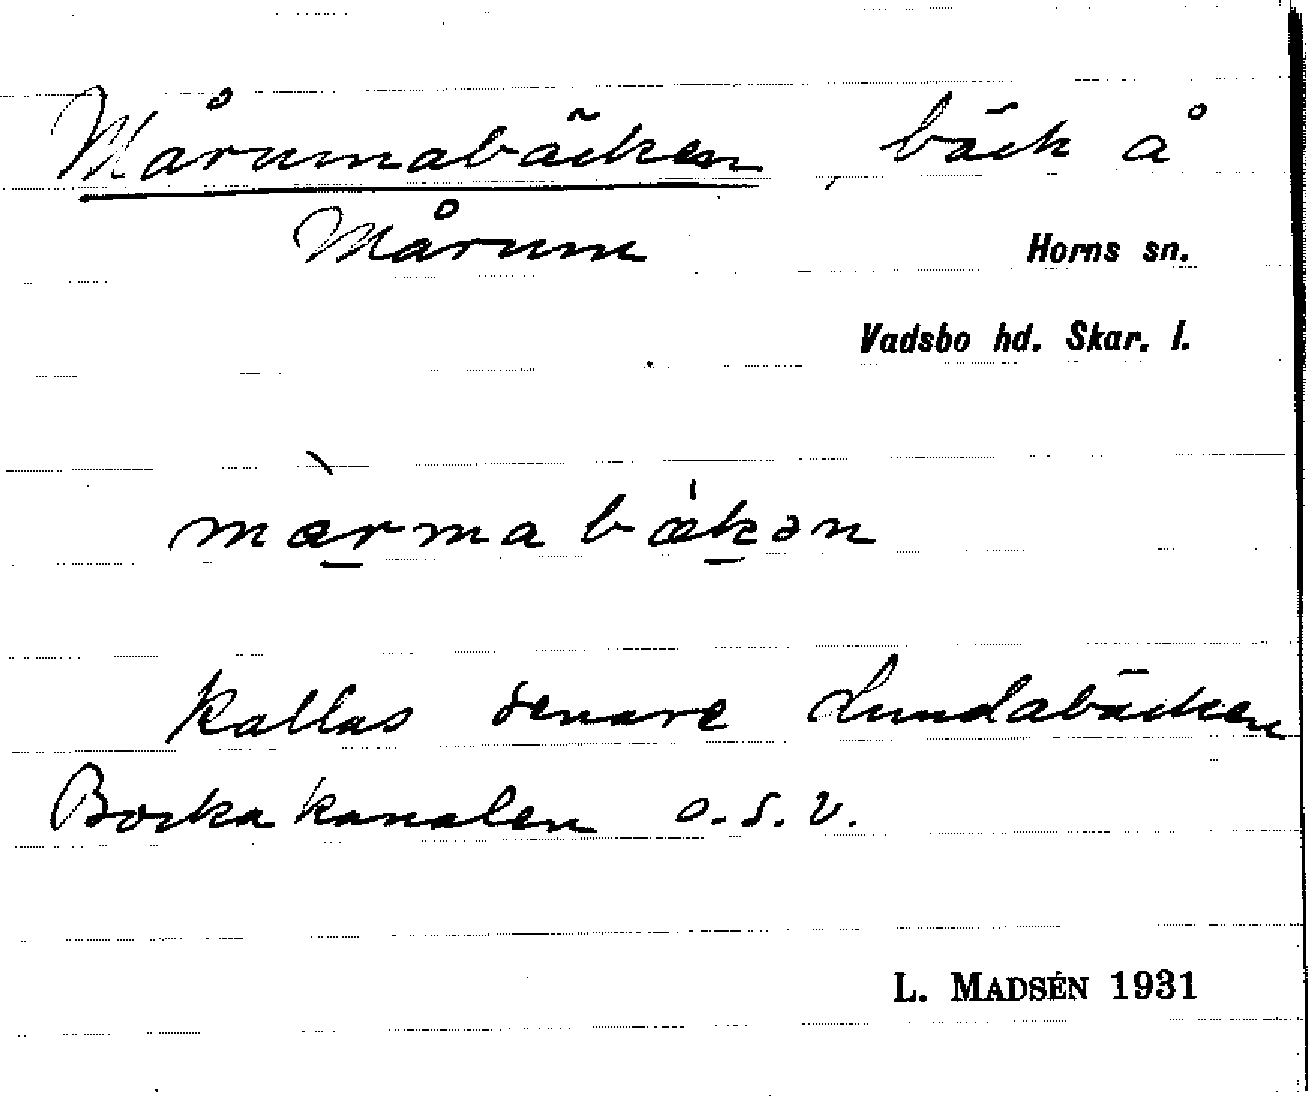 Mårumabäcken, bäck å
Mårum
Horns sn.
Vadsbo hd. Skar. l.
mὰrmabækən
Kallas senare Lundabäcken
Bockakanalen o.s.v.
L. MADSÉN 1931